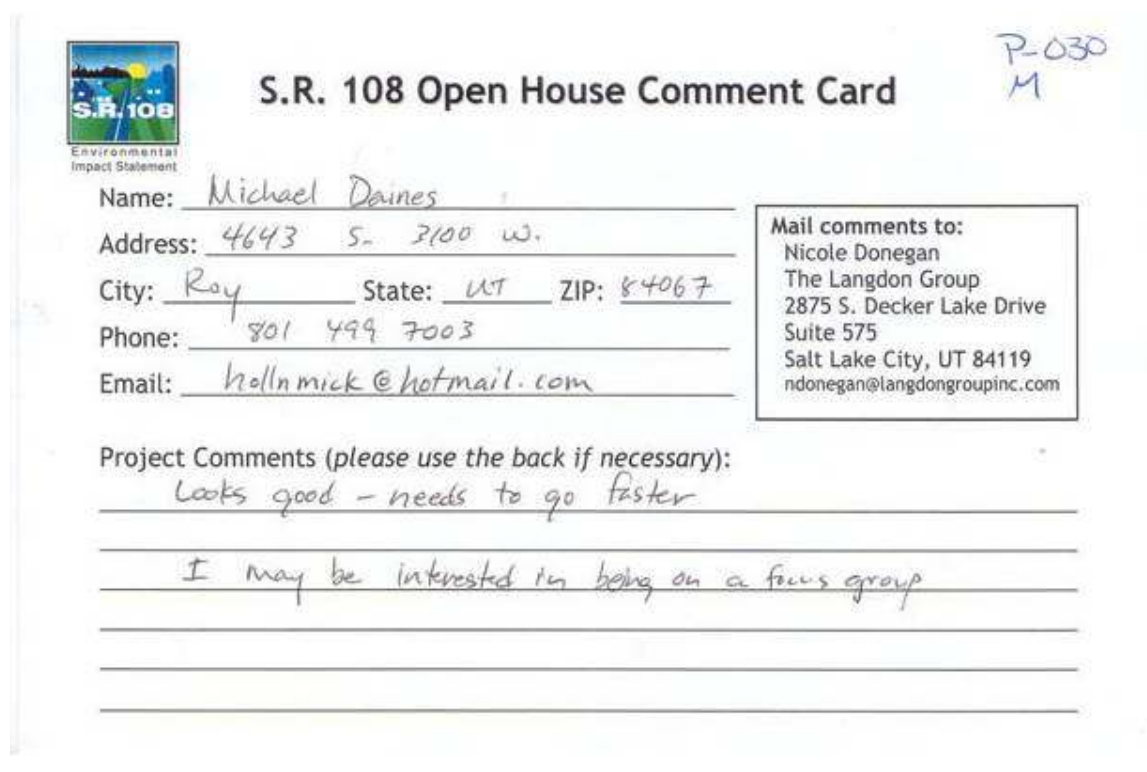 P-030
M
S.R. 108 Open House Comment Card
S.R. 108
Environmental
Impact Statement
Name: Michael Daines
Address: 4643 S. 3100 W.
City: Roy State: UT ZIP: 84067
Phone: 801 499 7003
Email: hollnmick@hotmail.com
Mail comments to:
Nicole Donegan
The Langdon Group
2875 S. Decker Lake Drive
Suite 575
Salt Lake City, UT 84119
ndonegan@langdongroupinc.com
Project Comments (please use the back if necessary):
Looks good - needs to go faster
I may be interested in being on a focus group